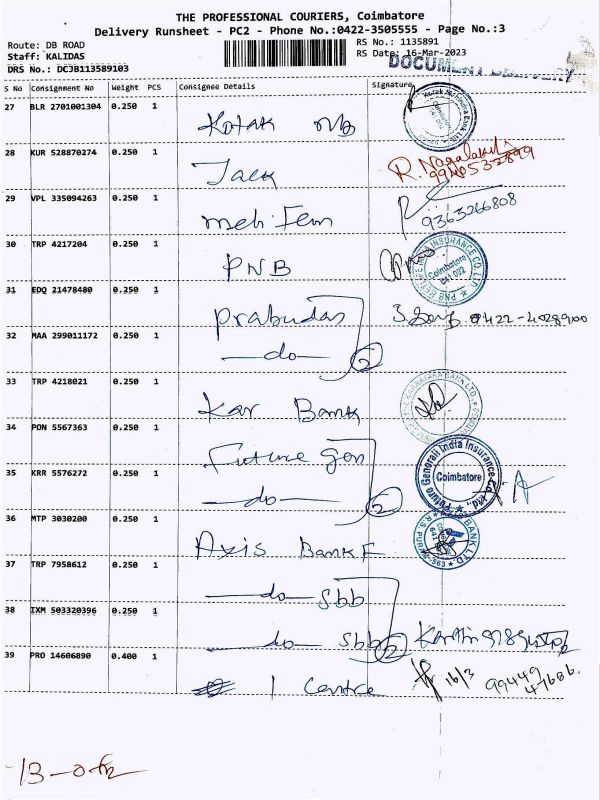 THE PROFESSIONAL COURIERS, Coimbatore
Delivery Runsheet - PC2 - Phone No.:0422-3505555 - Page No.:3
Route: DB ROAD
RS No.: 1135891
Staff: KALIDAS
RS Date: 16-Mar-2023
DRS No.: DCJB113589103
DOCUMENT DELIVERY
S No Consignment No Weight PCS Consignee Details Signature
27 BLR 2701001304 0.250 1
Kotak MB
28 KUR 528870274 0.250 1
Jack
29 VPL 335094263 0.250 1
9363266808
30 TRP 4217204 0.250 1
PNB
Coimbatore
641 002
31 EDQ 21478480 0.250 1
Prabudas
0422-4028900
32 MAA 299011172 0.250 1
do 2
33 TRP 4218021 0.250 1
Kar Bank
34 PON 5567363 0.250 1
Future Gen
Future Generali India Insurance Co. Ltd.
Coimbatore
35 KRR 5576272 0.250 1
do 2
36 MTP 3030200 0.250 1
Axis Bank F
37 TRP 7958612 0.250 1
do Sbb
38 IXM 503320396 0.250 1
do Sbb 2
39 PRO 14606890 0.400 1
1 Centre
16/3
99449
47686